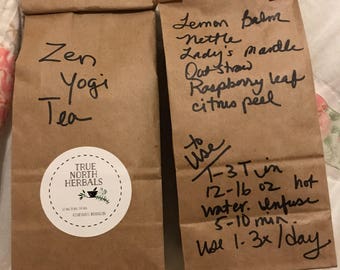 Zen
Yogi
Tea
TRUE
NORTH
HERBALS
Lemon Balm
Nettle
Lady's mantle
Oat straw
Raspberry leaf
citrus peel
to
use
1-3 T in
12-16 oz hot
water. infuse
5-10 min.
use 1-3x/day